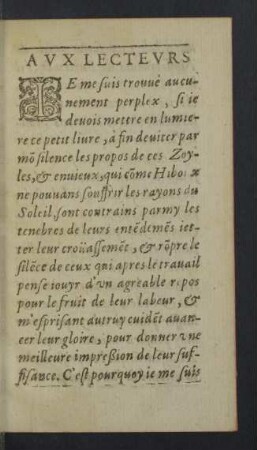 AVX LECTEVRS
IE me suis trouué aucu-
nement perplex, si ie
deuois mettre en lumie-
re ce petit liure, à fin deuiter par
mõ silence les propos de ces Zoy-
les, & enuieux, qui cõme Hiboux
ne pouuans souffrir les rayons du
Soleil, sont contrains parmy les
tenebres de leurs entẽdemẽs iet-
ter leur croüassemẽt, & rõpre le
silẽce de ceux qui apres le trauail
pense iouyr d'vn agreable repos
pour le fruit de leur labeur, &
m'esprisant autruy cuidẽt auan-
cer leur gloire, pour donner vne
meilleure impreßion de leur suf-
fisance. C'est pourquoy ie me suis